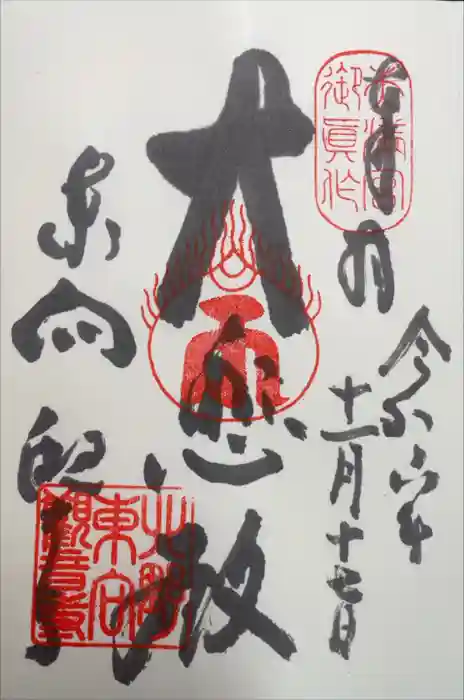 奉拝
令和六年
十一月十七日
大悲殿
東向
天満宮
御眞作
北野
東向
觀音寺